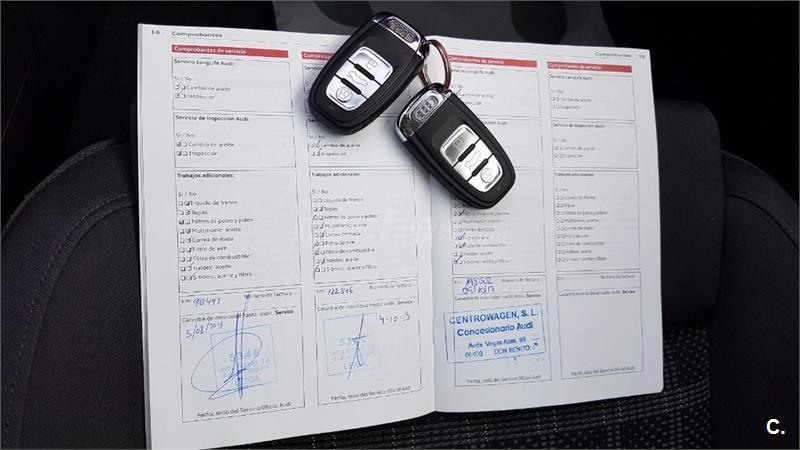 18 Comprobantes
Comprobantes de servicio
Servicio LongLife Audi:
Sí / No
Cambio de aceite
Inspección
Servicio de Inspección Audi:
Sí / No
Cambio de aceite
Inspección
Trabajos adicionales:
Sí / No
Líquido de frenos
Bujías
Filtros de polvo y polen
Multitronic: aceite
Correa dentada
Filtro de aire
Filtro de combustible
Haldex: aceite
S tronic: aceite y filtro
km:
Número de factura
Garantía de movilidad hasta indic. Service
5/02/2015
5346
Fecha, sello del Servicio Oficial Audi
Sí / No
Cambio de aceite
Inspección
Trabajos adicionales:
Sí / No
Líquido de frenos
Bujías
Filtros de polvo y polen
Multitronic: aceite
Correa dentada
Filtro de aire
Filtro de combustible
Haldex: aceite
S tronic: aceite y filtro
km: 122346 Número de factura
Garantía de movilidad hasta indic. Service
5346
Fecha, sello del Servicio Oficial Audi
Comprobantes 19
Comprobantes de servicio
Servicio LongLife Audi:
Cambio de aceite
Filtros de polvo y polen
Multitronic: aceite
Correa dentada
Filtro de aire
Filtro de combustible
Haldex: aceite
S tronic: aceite y filtro
09/10/17
Número de factura
Garantía de movilidad hasta indic. Service
CENTROWAGEN, S. L.
Concesionario Audi
Avda. Vegas Altas, 99
06400 DON BENITO
Fecha, sello del Servicio Oficial Audi
Comprobantes de servicio
Servicio LongLife Audi:
Sí / No
Cambio de aceite
Inspección
Servicio de Inspección Audi:
Sí / No
Cambio de aceite
Inspección
Trabajos adicionales:
Sí / No
Líquido de frenos
Bujías
Filtros de polvo y polen
Multitronic: aceite
Correa dentada
Filtro de aire
Filtro de combustible
Haldex: aceite
S tronic: aceite y filtro
km: Número de factura
Garantía de movilidad hasta indic. Service
Fecha, sello del Servicio Oficial Audi
C.